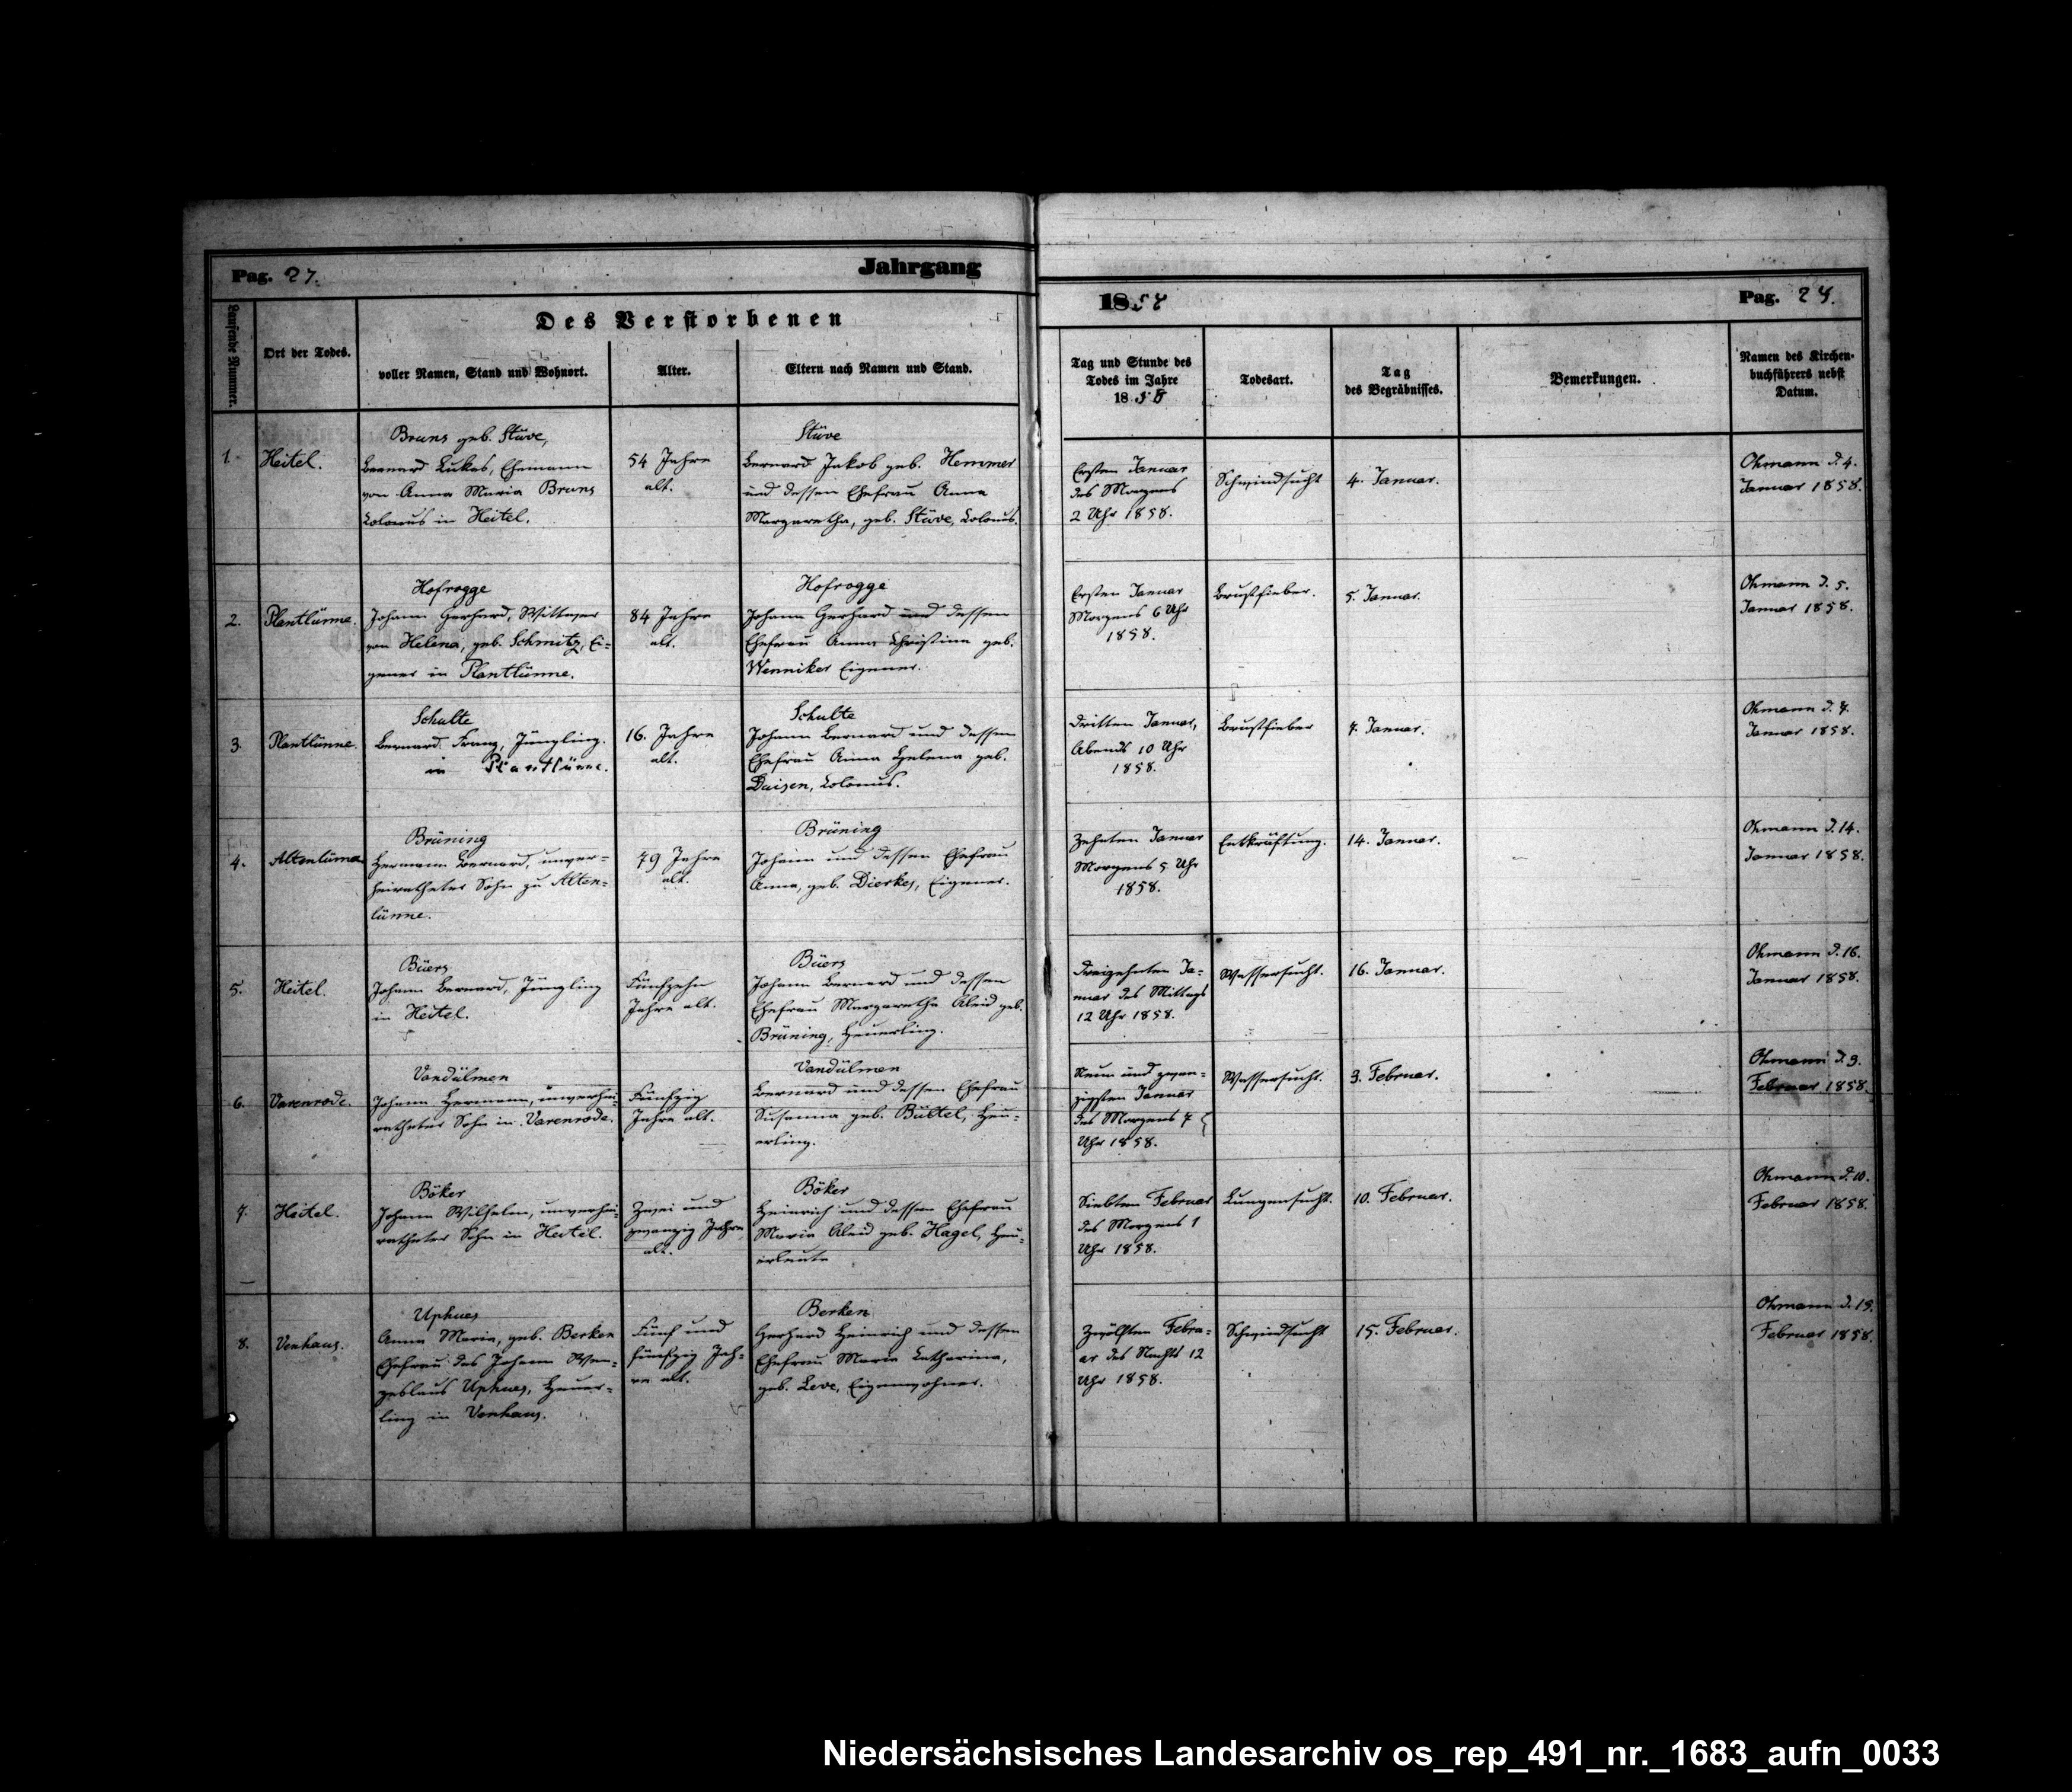 Pag. 27.
Jahrgang
1858
Pag. 28.
Laufende Nummer.
Ort der Todes.
Des Verstorbenen
voller Namen, Stand und Wohnort.
Alter.
Eltern nach Namen und Stand.
Tag und Stunde des
Todes im Jahre
1858
Todesart.
Tag
des Begräbnisses.
Bemerkungen.
Namen des Kirchen-
buchführers nebst
Datum.
1.
Heitel.
Bruns geb. Stüve,
Bernard Lukas, Ehemann
von Anna Maria Bruns
Colonus in Heitel.
54 Jahre
alt.
Stüve
Bernard Jakob geb. Hemmer
und dessen Ehefrau Anna
Margaretha, geb. Stüve, Colonus.
Ersten Januar
des Morgens
2 Uhr 1858.
Schwindsucht
4. Januar.
Ohmann d. 4.
Januar 1858.
2.
Plantlünne.
Hofrogge
Johann Gerhard, Wittwer
von Helena, geb. Schmitz, Ei=
gener in Plantlünne.
84 Jahre
alt.
Hofrogge
Johann Gerhard und dessen
Ehefrau Anna Christina geb.
Wenniker Eigener.
Ersten Januar
Morgens 6 Uhr
1858.
Brustfieber.
5. Januar.
Ohmann d. 5.
Januar 1858.
3.
Plantlünne.
Schulte
Bernard Franz, Jüngling.
in Plantlünne.
16. Jahre
alt.
Schulte
Johann Bernard und dessen
Ehefrau Anna Helena geb.
Duisen, Colonus.
Dritten Januar,
Abends 10 Uhr
1858.
Brustfieber
7. Januar.
Ohmann d. 7.
Januar 1858.
4.
Altenlünne
Brüning
Hermann Bernard, unver=
heiratheter Sohn zu Alten=
lünne.
79 Jahre
alt.
Brüning
Johann und dessen Ehefrau
Anna, geb. Dierkes, Eigener.
Zehnten Januar
Morgens 5 Uhr
1858.
Entkräftung.
14. Januar.
Ohmann d. 14.
Januar 1858.
5.
Heitel.
Büers
Johann Bernard, Jüngling
in Heitel.
Fünfzehn
Jahre alt.
Büers
Johann Bernard und dessen
Ehefrau Margaretha Aleid geb.
Brüning, Heuerling.
Dreizehnten Ja=
nuar des Mittags
12 Uhr 1858.
Wassersucht.
16. Januar.
Ohmann d. 16.
Januar 1858.
6.
Varenrode.
Vandülmen
Johann Hermann, unverhei=
ratheter Sohn in Varenrode.
Fünfzig
Jahre alt.
Vandülmen
Bernard und dessen Ehefrau
Susanna geb. Bültel, Heu=
erling.
Neun und zwan=
zigsten Januar
des Morgens 7
Uhr 1858.
Wassersucht.
3. Februar.
Ohmann d. 3.
Februar 1858.
7.
Heitel.
Böker
Johann Wilhelm, unverhei=
ratheter Sohn in Heitel.
Zwei und
zwanzig Jahre
alt.
Böker
Heinrich und dessen Ehefrau
Maria Aleid geb. Hagel, Heu=
erleute
Siebten Februar
des Morgens 1
Uhr 1858.
Lungensucht.
10. Februar.
Ohmann d. 10.
Februar 1858.
8.
Venhaus.
Uphues
Anna Maria, geb. Berken
Ehefrau des Johann Wen=
zeslaus Uphues, Heuer=
ling in Venhaus.
Fünf und
fünfzig Jah=
re alt.
Berken
Gerhard Heinrich und dessen
Ehefrau Maria Catharina,
geb. Leve, Eigenwohner.
Zwölften Febru=
ar des Nachts 12
Uhr 1858.
Schwindsucht
15. Februar.
Ohmann d. 15.
Februar 1858.
Niedersächsisches Landesarchiv os_rep_491_nr._1683_aufn_0033